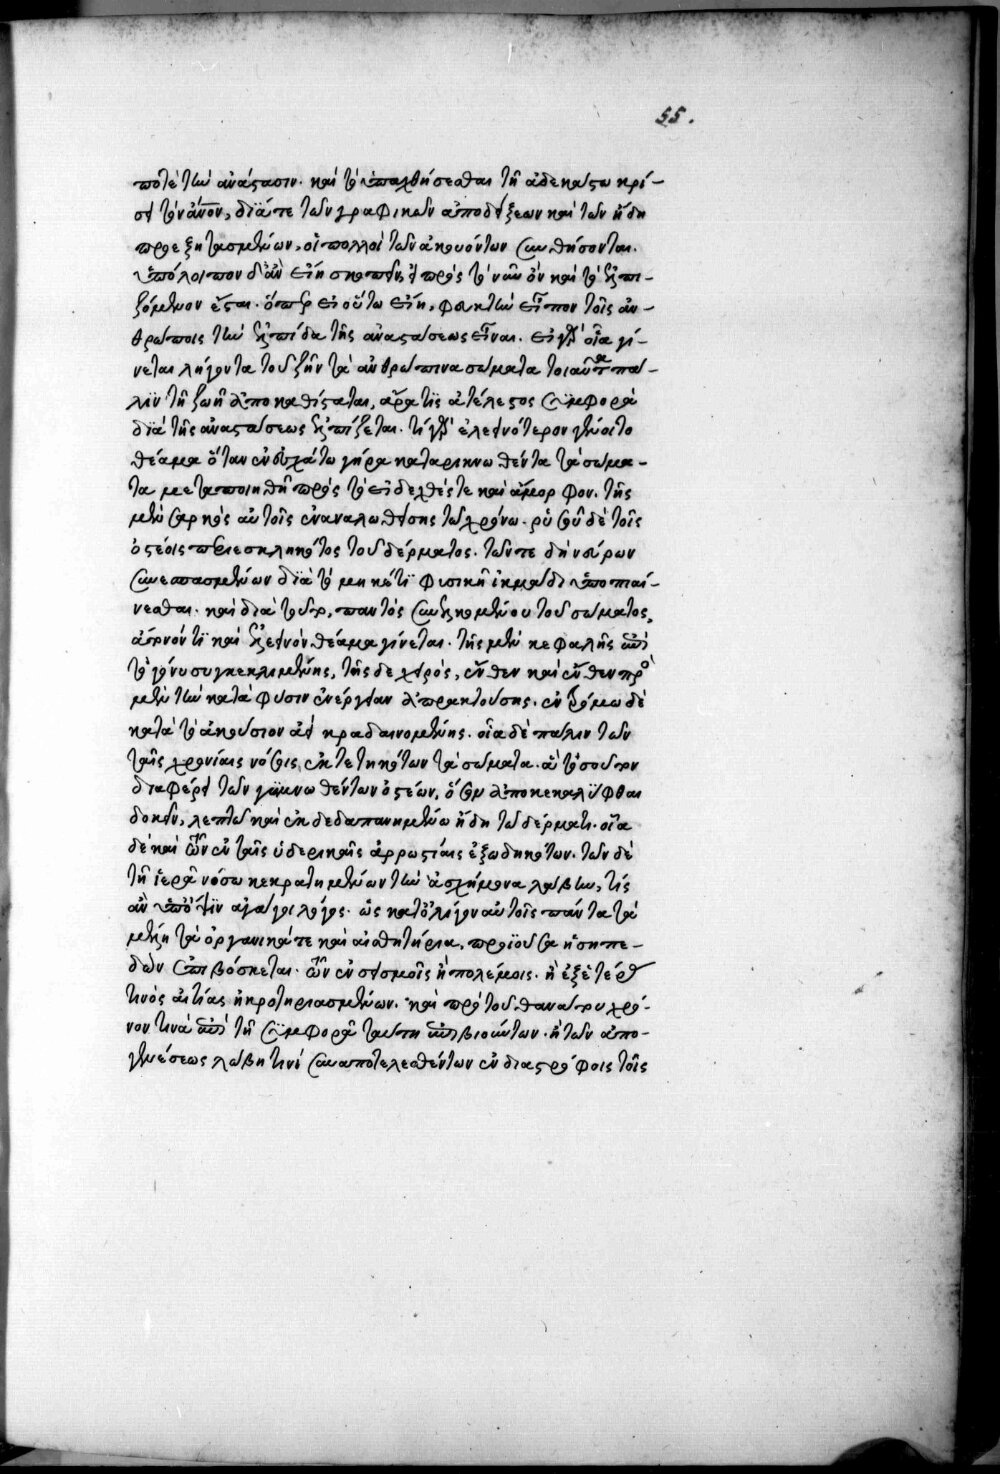 55.
ποτὲ τὴν ἀνάστασιν. καὶ τὸ ὑπαχθήσεσθαι τῇ ἀδεκάστω κρί-
σει τὸν ἄνον, διά τε τῶν γραφικῶν ἀποδείξεων καὶ τῶν ἤδη
προεξητασμένων, οἱ πολλοὶ τῶν ἀκουόντων συνθήσονται.
ὑπόλοιπον δ' ἂν εἴη σκοπεῖν, εἰ πρὸς τὸ νῦν ὂν καὶ τὸ ἐλπι-
ζόμενον ἔσται. ὅπερ εἰ οὕτω εἴη, φευκτὴν εἶπον τοῖς ἀν-
θρώποις τὴν ἐλπίδα τῆς ἀναστάσεως εἶναι. εἰ γὰρ οἷα γί-
νεται λήγοντα τοῦ ζῆν τὰ ἀνθρώπινα σώματα τοιαῦτα πά-
λιν τῇ ζωῇ ἀποκαθίσταται, ἄρα τὶς ἀτέλεστος συμφορὰ
διὰ τῆς ἀναστάσεως ἐλπίζεται. τί γὰρ ἐλεεινότερον γένοιτο
θέαμα ὅταν ἐν ἐσχάτω γήρα καταρικνωθέντα τὰ σώμα-
τα μεταποιηθῆ πρὸς τὸ εἰδεχθές τε καὶ ἄμορφον. τῆς
μὲν σαρκὸς αὐτοῖς ἐναναλωθείσης τῶ χρόνω. ῥυσοῦ δὲ τοῖς
ὀστέοις περιεσκληκότος τοῦ δέρματος. τῶν τε δὴ νεύρων
συνεσπασμένων διὰ τὸ μηκέτι φυσικῇ ἰκμάδι ὑποπιαί-
νεσθαι. καὶ διὰ τοῦτο, παντὸς συνελκομένου τοῦ σώματος,
ἄτοπόν τι καὶ ἐλεεινὸν θέαμα γίνεται. τῆς μὲν κεφαλῆς ἐπὶ
τὸ γόνυ συγκεκλιμένης, τῆς δὲ χειρὸς, ἔνθεν καὶ ἔνθεν πρὸ
μὲν τὴν κατὰ φύσιν ἐνέργειαν ἀπρακτούσης. ἐν τρόμω δὲ
κατὰ τὸ ἀκούσιον ἀεὶ κραδαινομένης. οἷα δὲ πάλιν τῶν
ταῖς χρονίαις νόσοις ἐκτετηκότων τὰ σώματα. ἃ τοσοῦτον
διαφέρει τῶν γυμνωθέντων ὀστέων, ὅσον ἀποκεκαλύφθαι
δοκεῖν, λεπτῶ καὶ ἐκδεδαπανημένω ἤδη τῶ δέρματι. οἷα
δὲ καὶ τῶν ἐν ταῖς ὑδερικαῖς ἀρρωστίαις ἐξωδηκότων. τῶν δὲ
τῇ ἱερᾷ νόσω κεκρατημένων τὴν ἀσχήμονα λώβην, τίς
ἂν ὑπ' ὄψιν ἀγάγοι λόγος. ὡς κατ' ὀλίγον αὐτοῖς πάντα τὰ
μέλη τὰ ὀργανικά τε καὶ αἰσθητήρια, προϊοῦσα ἡ σηπε-
δὼν ἐπιβόσκεται. τῶν ἐν σεισμοῖς ἢ πολέμοις. ἢ ἐξ ἑτέρας
τινὸς αἰτίας ἠκρωτηριασμένων. καὶ πρὸ τοῦ θανάτου χρό-
νον τινὰ ἐπὶ τῇ συμφορᾷ ταύτη ἐπιβιούντων. ἢ τῶν ἀπο-
γενέσεως λώβη τινὶ συναποτελεσθέντων ἐν διαστρόφοις τοῖς